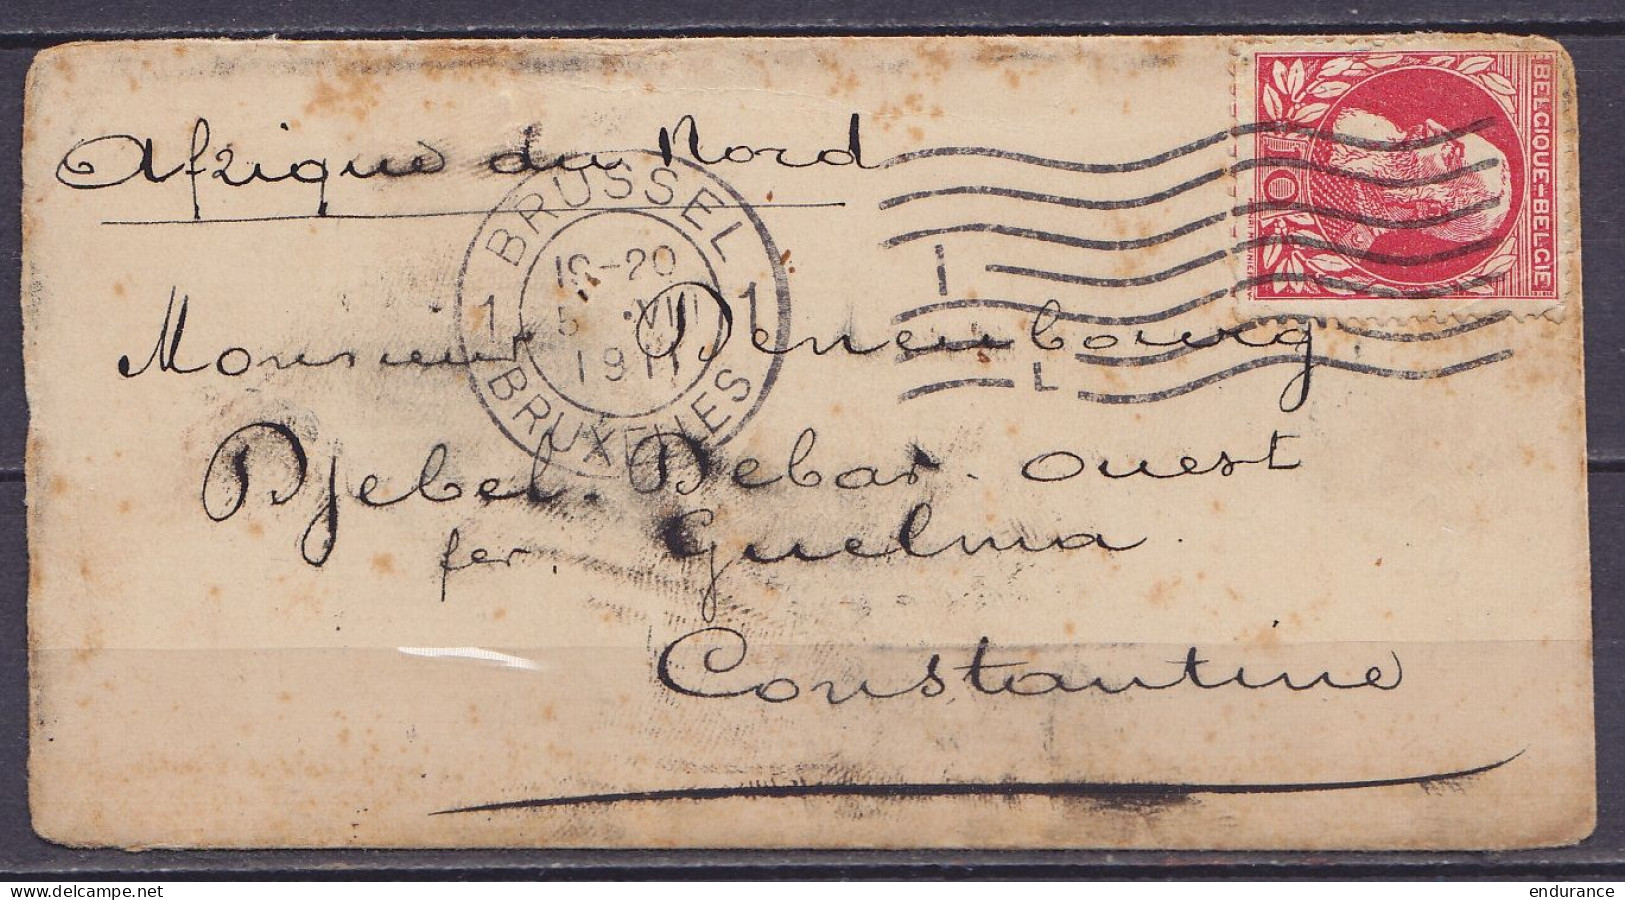 Afrique du Nord
BELGIQUE-BELGIE
10
BRUSSEL
1 1
-20
VIII
1911
BRUXELLES
I
L
Monsieur Denenbourg
Djebel. Debar. Ouest
fer. Guelma.
Constantine
delcampe.net
endurance